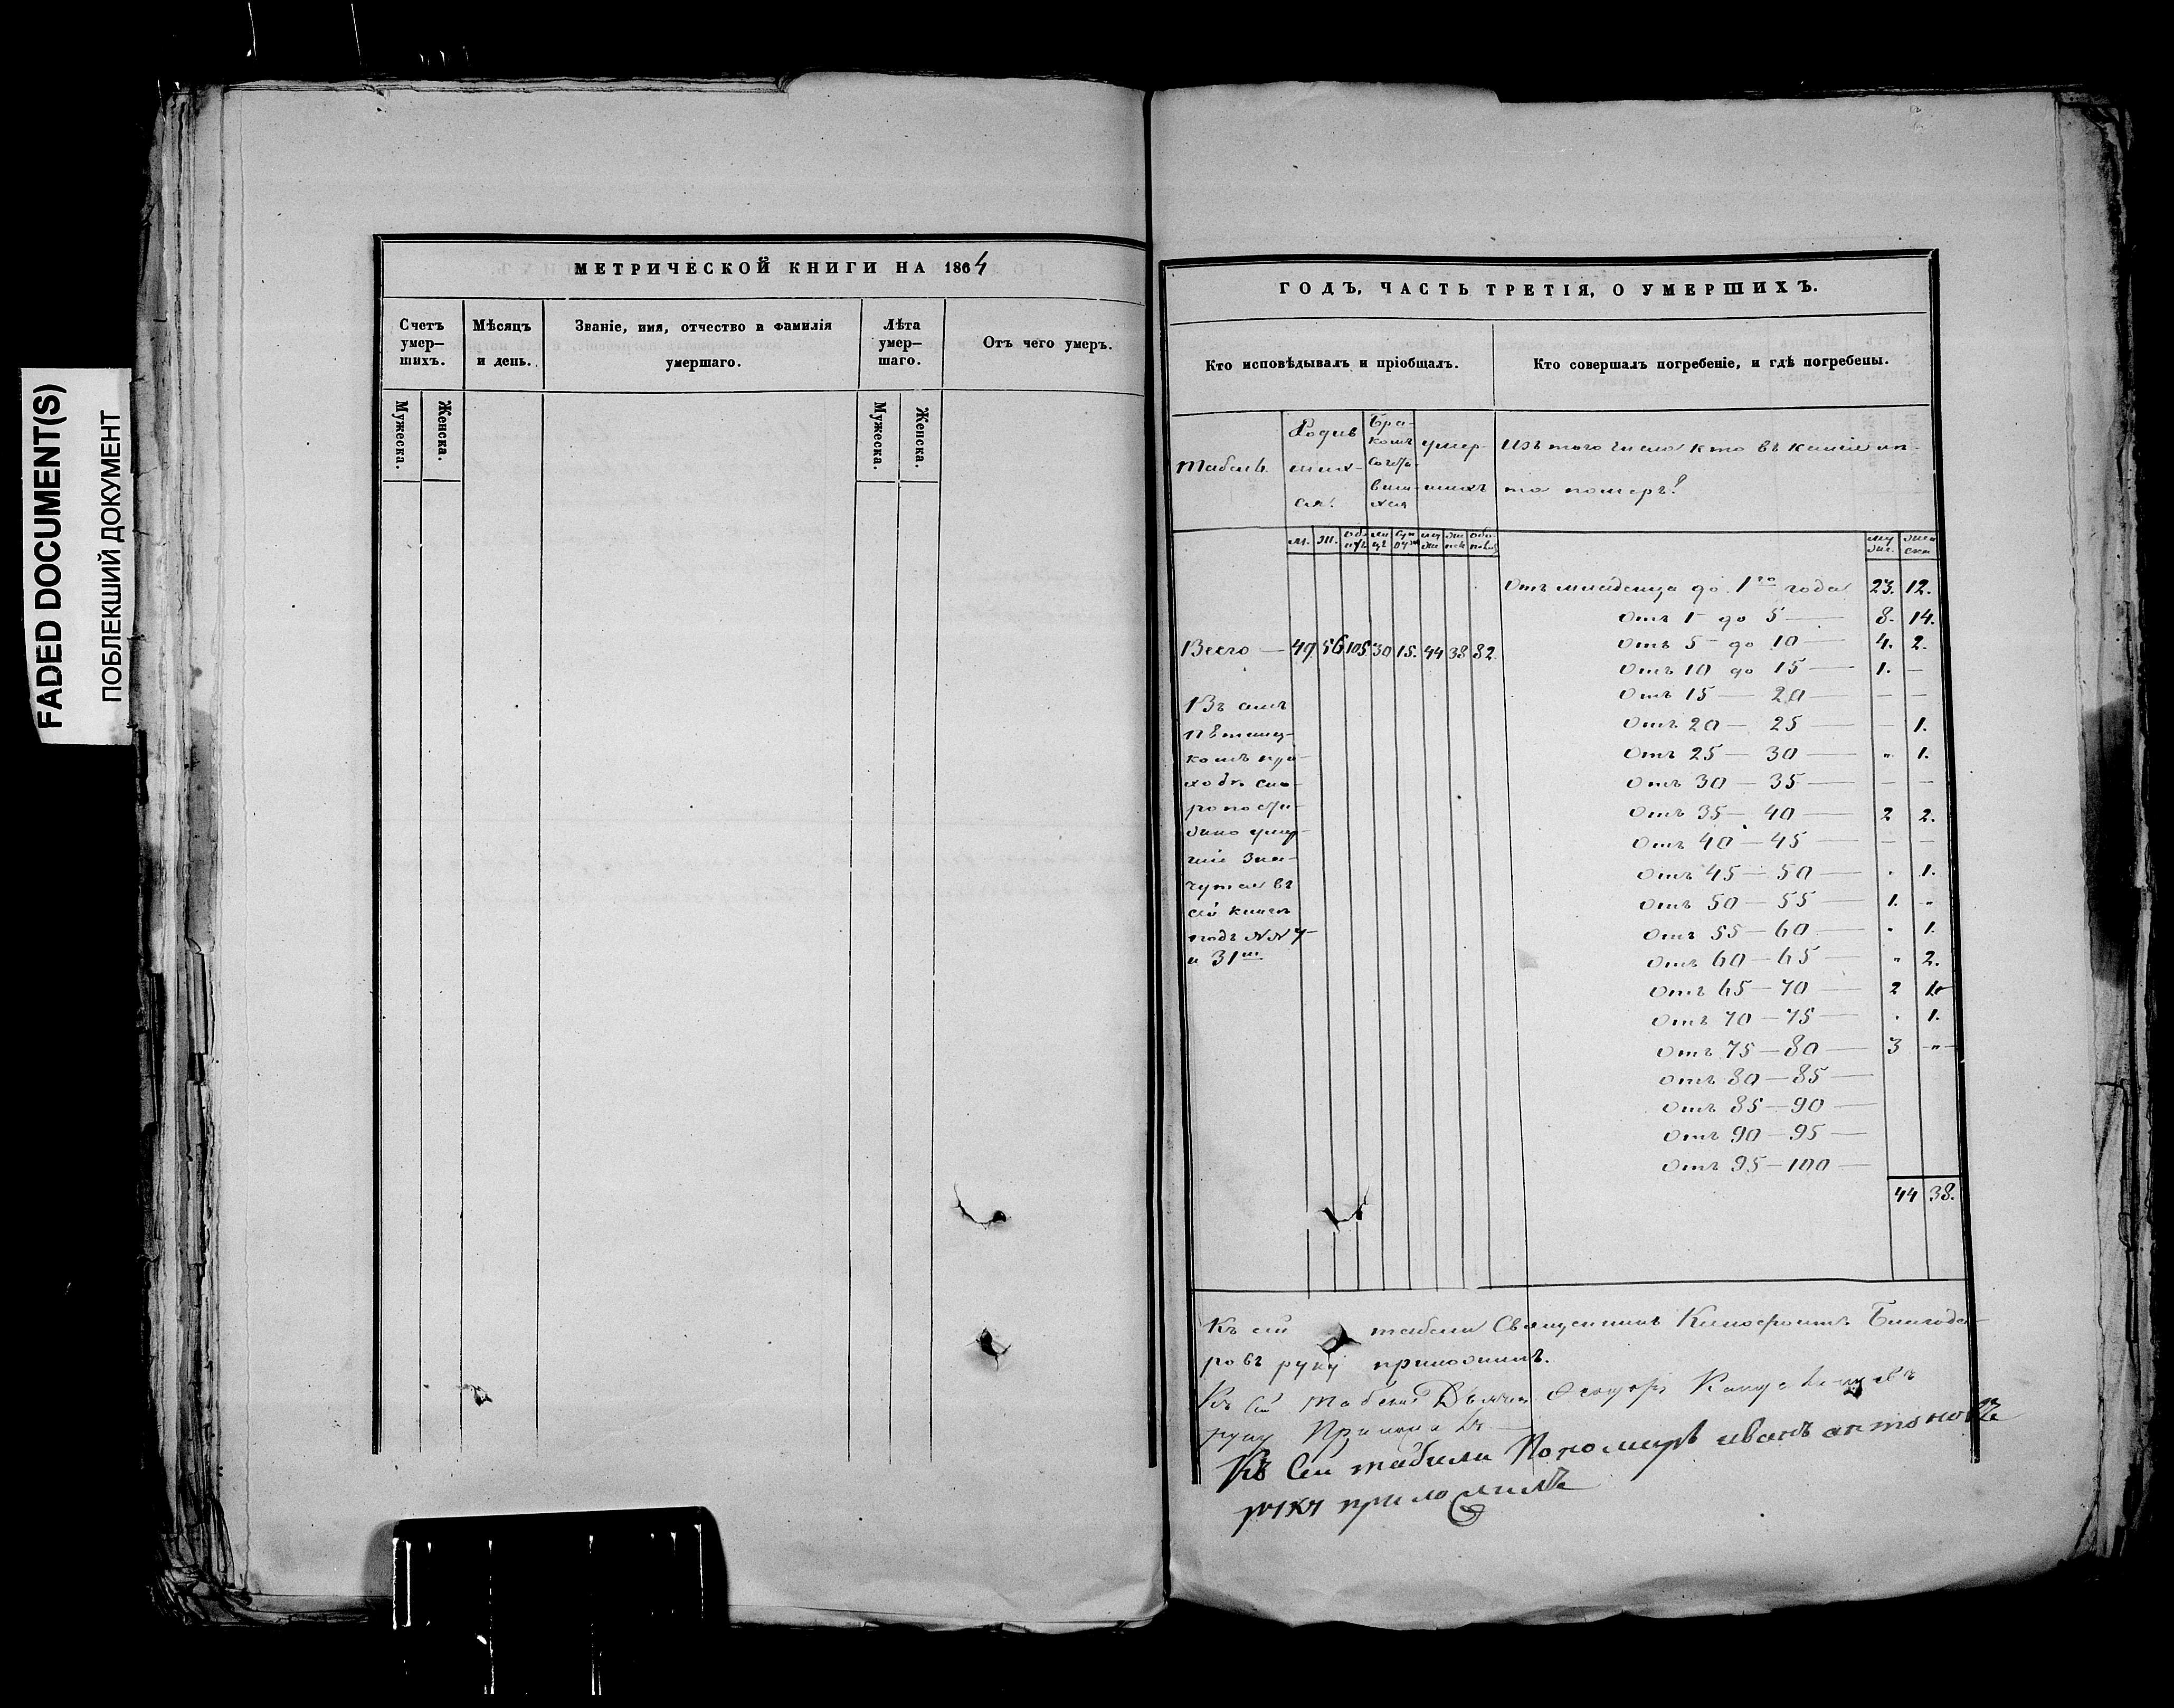 FADED DOCUMENT(S)
ПОБЛЕКШИЙ ДОКУМЕНТ
МЕТРИЧЕСКОЙ КНИГИ НА 1864
Счетъ умер— шихъ.
Мѣсяцъ и день.
Званіе, имя, отчество и фамилія умершаго.
Лѣта умер— шаго.
Отъ чего умеръ.
Мужеска.
Женска.
Мужеска.
Женска.
ГОДЪ, ЧАСТЬ ТРЕТІЯ, О УМЕРШИХЪ.
Кто исповѣдывалъ и пріобщалъ.
Кто совершалъ погребеніе, и гдѣ погребены.
табель.
Родив
ших-
ся.
Бра-
комъ
сочета-
вши-
хся
умер-
шихъ
Изъ того числа кто въ какіе лѣ-
та померъ?
м. ж.
Отъ младенца до 1го года 23. 12.
Отъ 1 до 5 — 8. 14.
Отъ 5 до 10 — 4. 2.
Отъ 10 до 15 — 1. —
Отъ 15 — 20 — — —
Отъ 20 — 25 — — 1.
Отъ 25 — 30 — „ 1.
Отъ 30 — 35 — — —
Отъ 35 — 40 — 2 2.
Отъ 40 — 45 — — —
Отъ 45 — 50 — . 1.
Отъ 50 — 55 — 1. „
Отъ 55 — 60 — . 1.
Отъ 60 — 65 — „ 2.
Отъ 65 — 70 — 2 1.
Отъ 70 — 75 — . 1.
Отъ 75 — 80 — 3 „
Отъ 80 — 85 —
Отъ 85 — 90 —
Отъ 90 — 95 —
Отъ 95 — 100 —
44 38.
Всего — 49 56 105 30 15. 44 38 82.
ходѣ ско-
ропости-
жно умер-
шіе зна-
чутся въ
сей книгѣ
подъ №№ 7
и 31м
Къ сей табели Священникъ Благода-
ровъ руку приложилъ.
Къ сей табели Дьячекъ Ѳеодоръ
руку
Къ сей табели Пономарь иванъ антоновъ
руку приложилъ